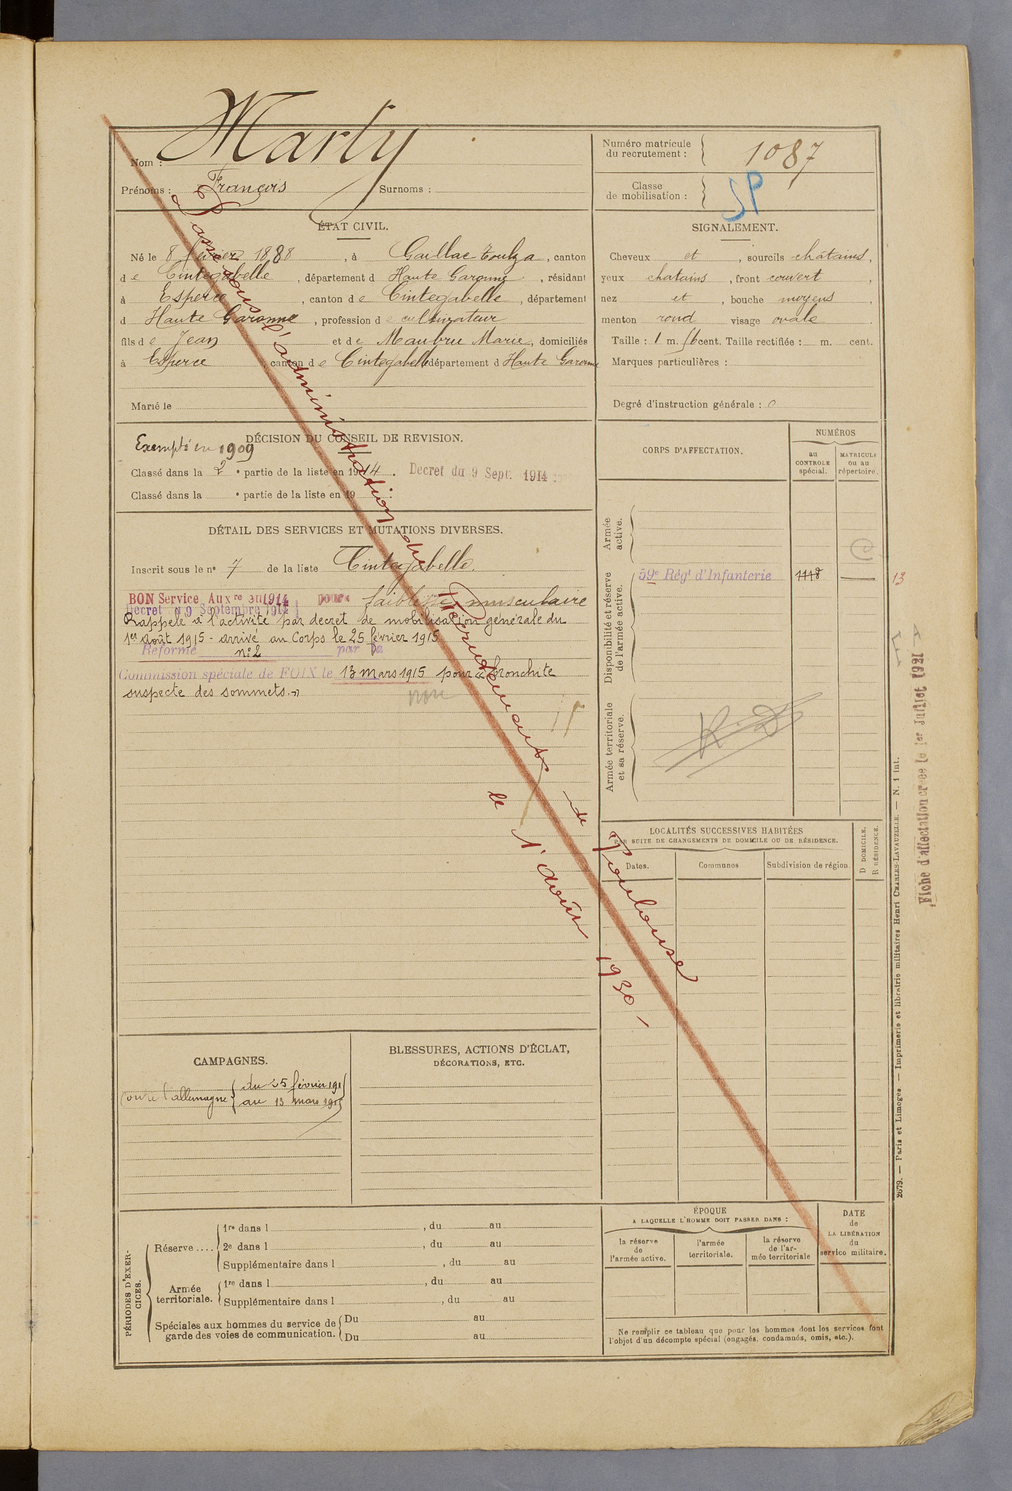 Nom : Marty
Prénoms : François Surnoms :
Numéro matricule
du recrutement : 1087
Classe
de mobilisation : SP
ÉTAT CIVIL.
Né le 8 février 1888, à Gaillac Toulza, canton
de Cintegabelle, département d Haute Garonne, résidant
à Esperce, canton de Cintegabelle, département
d Haute Garonne, profession de cultivateur
fils de Jean et de Maubru Marie, domiciliés
à Esperce canton de Cintegabelle département d Haute Garonne
Marié le
SIGNALEMENT.
Cheveux et, sourcils chatains,
yeux chatains, front couvert
nez et, bouche moyens,
menton rond visage ovale
Taille : 1 m. cent. Taille rectifiée : m. cent.
Marques particulières :
Degré d'instruction générale :
DÉCISION DU CONSEIL DE REVISION.
Exempté en 1909
Classé dans la 2e partie de la liste en 1914. Decret du 9 Sept. 1914
Classé dans la e partie de la liste en 19
DÉTAIL DES SERVICES ET MUTATIONS DIVERSES.
Inscrit sous le no 7 de la liste Cintegabelle.
BON Service Auxre en 1914 pour faiblesse musculaire
Decret du 9 Septembre 1914
Rappelé à l'activité par decret de mobilisation générale du
1er août 1915 - arrivé au Corps le 25 février 1915
Réformé no 2 par la
Commission spéciale de FOIX le 13 mars 1915 pour bronchite
suspecte des sommets.
Passé sous l'administration du Recrutement de Toulouse
le 1er août 1930
CORPS D'AFFECTATION.
NUMÉROS
au
CONTROLE
spécial.
MATRICULE
ou au
répertoire.
Armée
active.
Disponibilité et réserve
de l'armée active.
59e Régt d'Infanterie 1118
13
Armée territoriale
et sa réserve.
R.D
LOCALITÉS SUCCESSIVES HABITÉES
PAR SUITE DE CHANGEMENTS DE DOMICILE OU DE RÉSIDENCE.
Dates. Communes Subdivision de région.
D DOMICILE.
R RÉSIDENCE.
Fiche d'affectation créée le 1er Juillet 1921
CAMPAGNES.
Contre l'allemagne du 25 février 1915
au 13 mars 1915
BLESSURES, ACTIONS D'ÉCLAT,
DÉCORATIONS, ETC.
PÉRIODES D'EXER-
CICES.
Réserve .... 1re dans l , du au
2e dans l , du au
Supplémentaire dans l , du au
Armée
territoriale. 1re dans l , du au
Supplémentaire dans l , du au
Spéciales aux hommes du service de
garde des voies de communication. Du au
Du au
ÉPOQUE
A LAQUELLE L'HOMME DOIT PASSER DANS :
la réserve
de
l'armée active.
l'armée
territoriale.
la réserve
de l'ar-
mée territoriale
DATE
de
LA LIBÉRATION
du
service militaire.
Ne remplir ce tableau que pour les hommes dont les services font
l'objet d'un décompte spécial (engagés, condamnés, omis, etc.).
2679. — Paris et Limoges. — Imprimerie et librairie militaires Henri CHARLES-LAVAUZELLE. — N. 1 int.